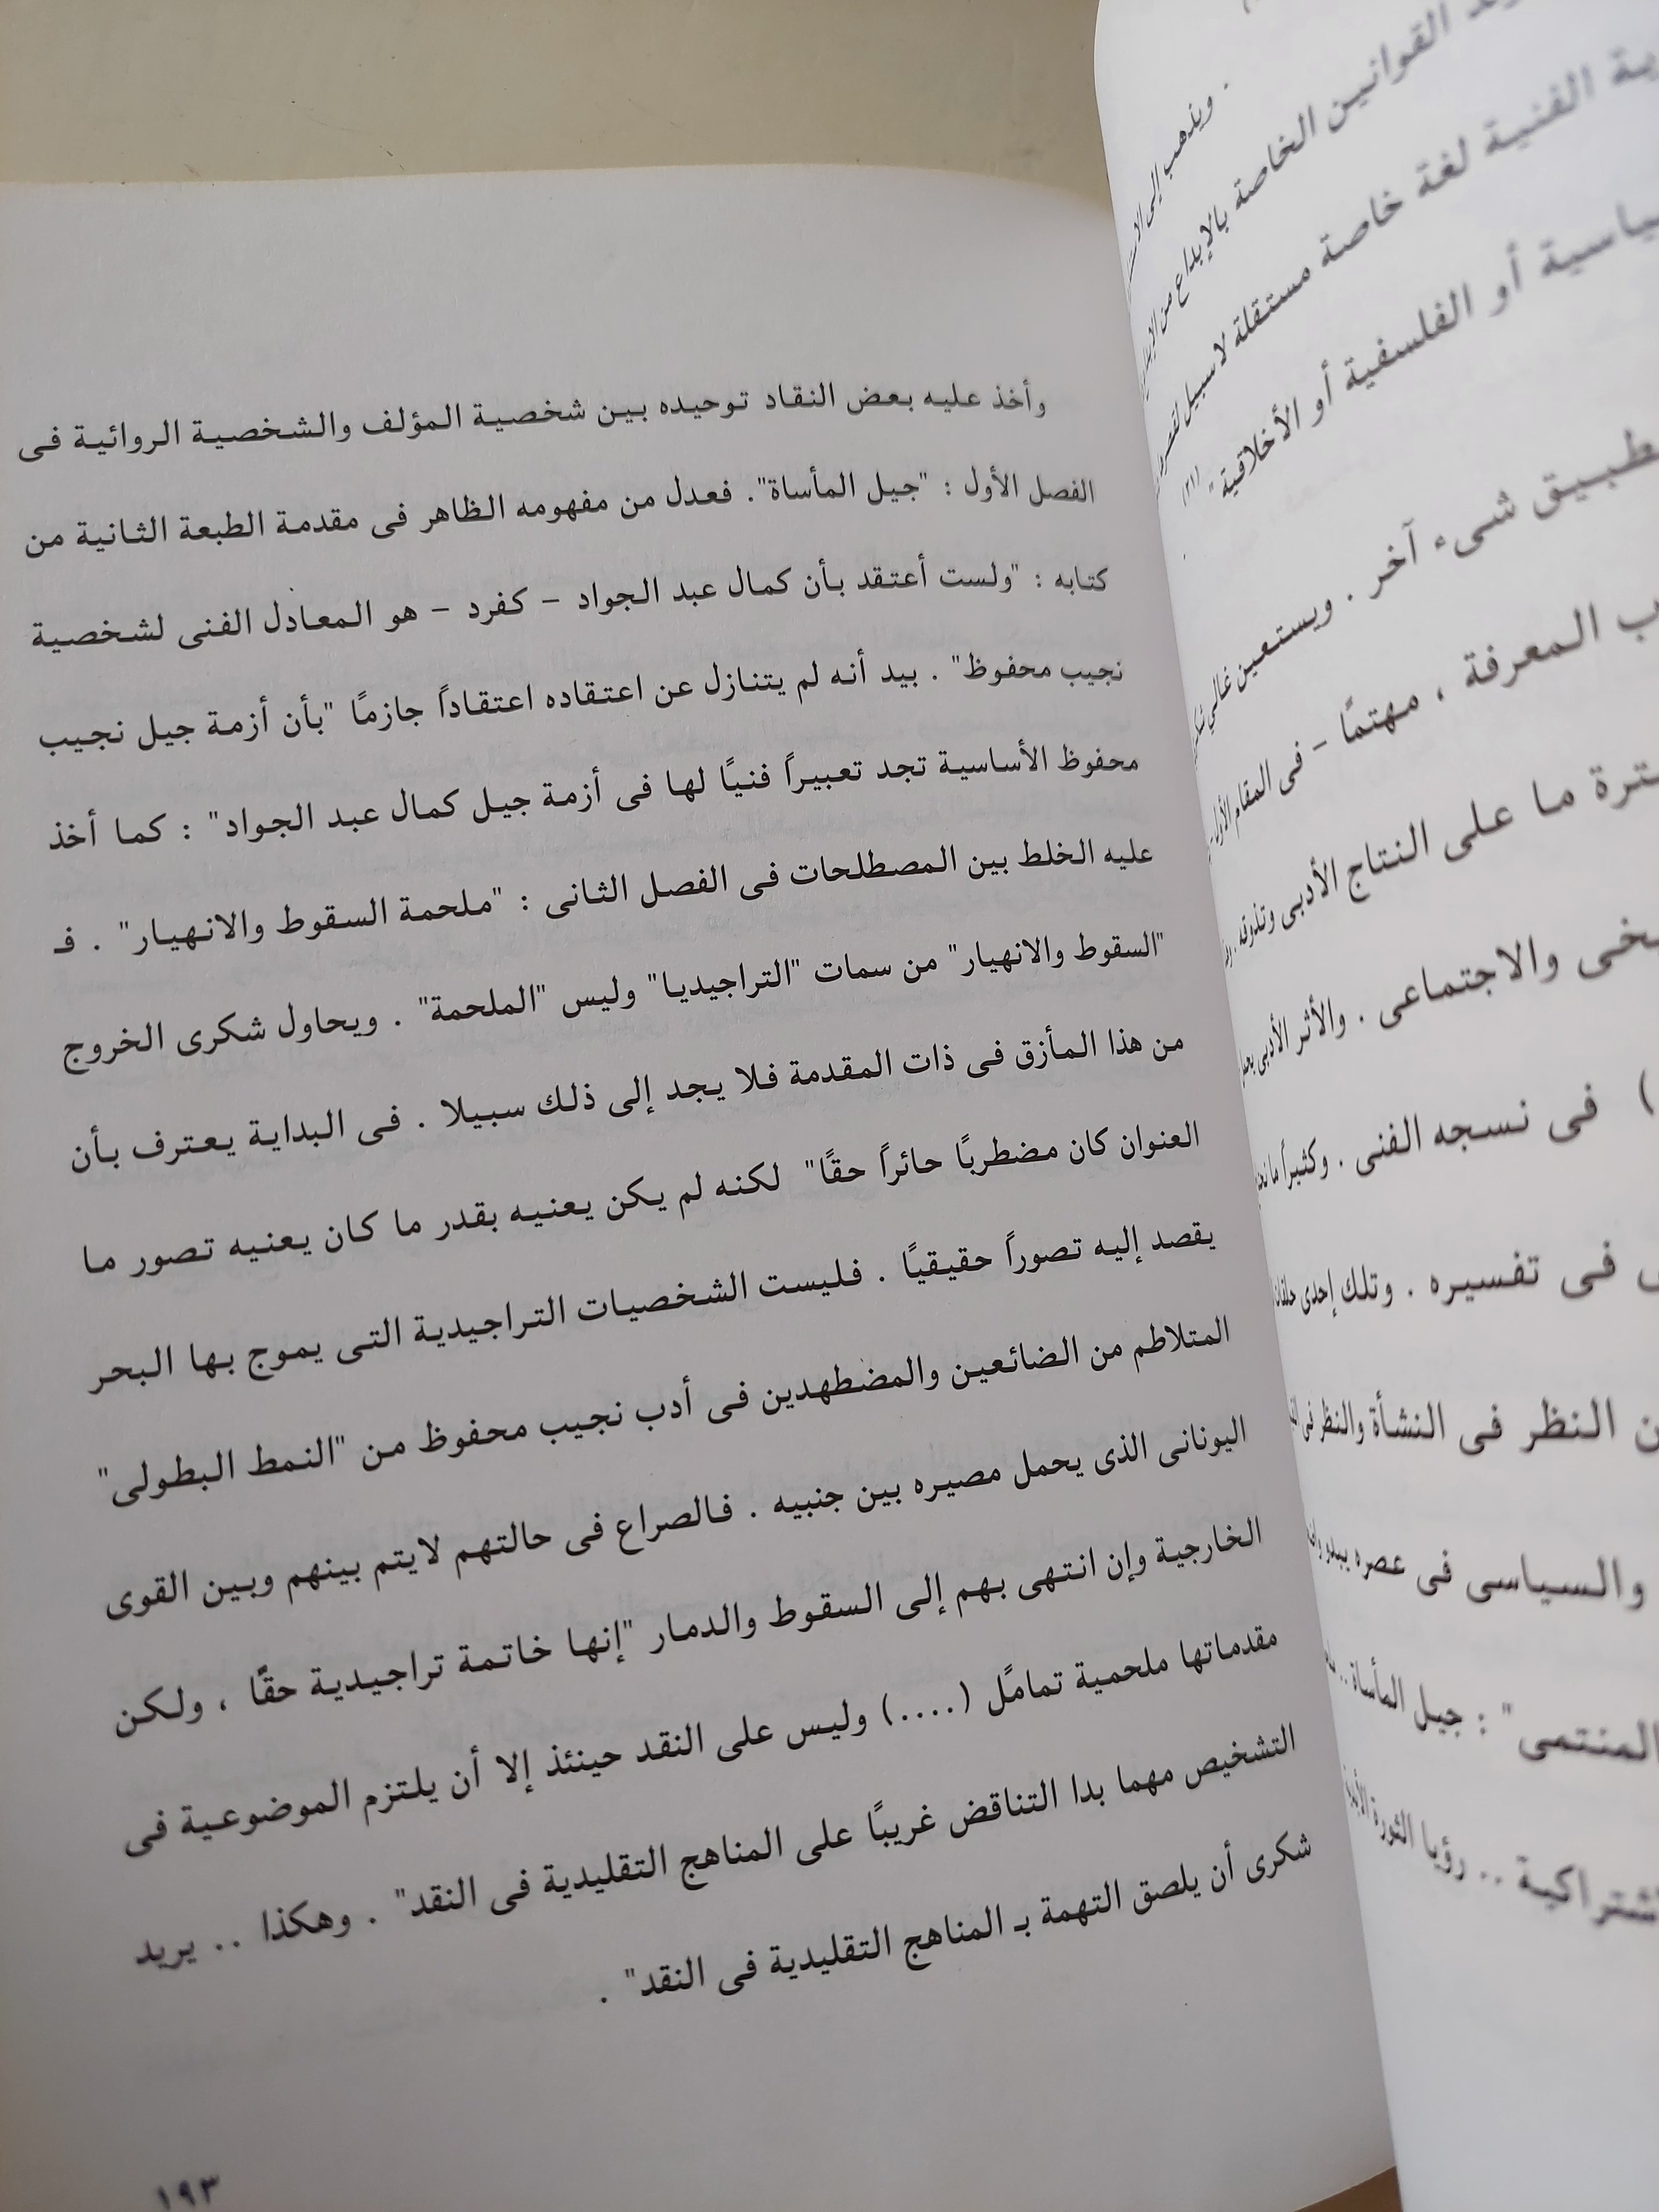 القوانين الخاصة بالإبداع من
. ويذهب إلى
ية الفنية لغة خاصة مستقلة لا سبيل
ياسية أو الفلسفية أو الأخلاقية" (٢١)
طبيق شىء آخر . ويستعين غالي
ب المعرفة ، مهتمًا – فى المقام الأول
ترة ما على النتاج الأدبى وتذوقه .
خى والاجتماعى . والأثر الأدبى
) فى نسجه الفنى . وكثيراً ما
ى فى تفسيره . وتلك إحدى
ن النظر فى النشأة والنظر فى
والسياسى فى عصره يبدو
المنتمى" : جيل المأساة ..
شتراكية .. رؤيا الثورة
وأخذ عليه بعض النقاد توحيده بين شخصية المؤلف والشخصية الروائية فى
الفصل الأول : "جيل المأساة". فعدل من مفهومه الظاهر فى مقدمة الطبعة الثانية من
كتابه : "ولست أعتقد بأن كمال عبد الجواد – كفرد – هو المعادل الفنى لشخصية
نجيب محفوظ" . بيد أنه لم يتنازل عن اعتقاده اعتقاداً جازمًا "بأن أزمة جيل نجيب
محفوظ الأساسية تجد تعبيراً فنيًا لها فى أزمة جيل كمال عبد الجواد" : كما أخذ
عليه الخلط بين المصطلحات فى الفصل الثانى : "ملحمة السقوط والانهيار" . فـ
"السقوط والانهيار" من سمات "التراجيديا" وليس "الملحمة" . ويحاول شكرى الخروج
من هذا المأزق فى ذات المقدمة فلا يجد إلى ذلك سبيلا . فى البداية يعترف بأن
العنوان كان مضطربًا حائراً حقًا" لكنه لم يكن يعنيه بقدر ما كان يعنيه تصور ما
يقصد إليه تصوراً حقيقيًا . فليست الشخصيات التراجيدية التى يموج بها البحر
المتلاطم من الضائعين والمضطهدين فى أدب نجيب محفوظ من "النمط البطولى"
اليونانى الذى يحمل مصيره بين جنبيه . فالصراع فى حالتهم لايتم بينهم وبين القوى
الخارجية وإن انتهى بهم إلى السقوط والدمار "إنها خاتمة تراجيدية حقًا ، ولكن
مقدماتها ملحمية تمامًل (....) وليس على النقد حينئذ إلا أن يلتزم الموضوعية فى
التشخيص مهما بدا التناقض غريبًا على المناهج التقليدية فى النقد" . وهكذا .. يريد
شكرى أن يلصق التهمة بـ المناهج التقليدية فى النقد" .
١٩٣